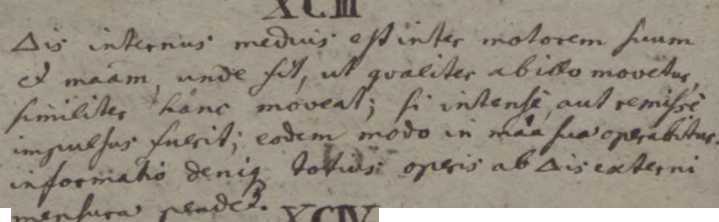 XCIII
△is internus medius est inter motorem suum
et māam, unde fit, ut qualiter ab illo movetur,
similiter hanc moveat; si intensè, aut remissè
impulsus fuerit; eodem modo in māa sua operabitur.
informatio deniq totius operis ab △is externi
mensura pendet.
XCIV